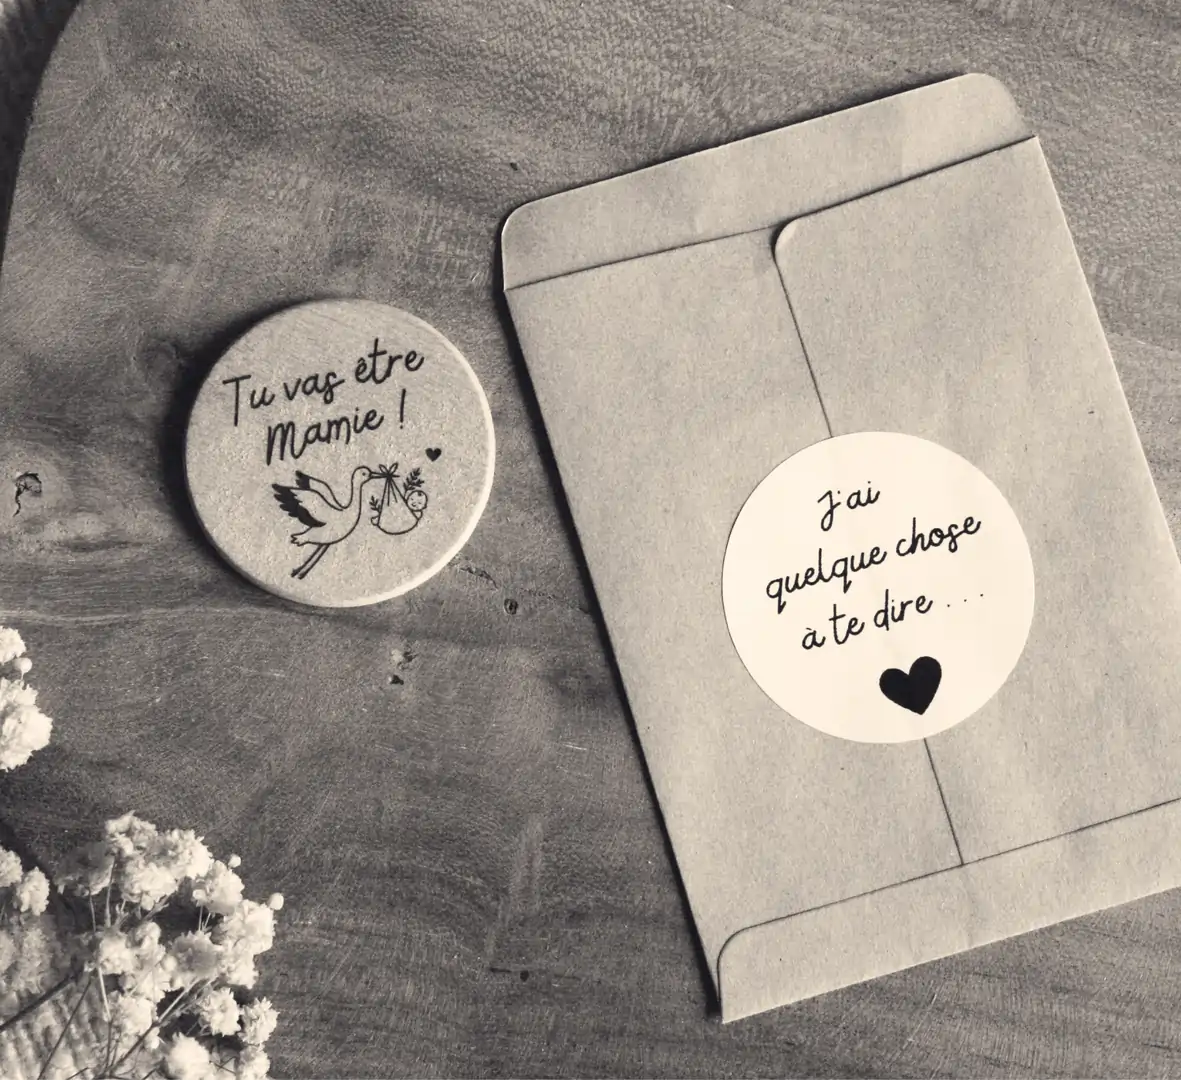 Tu vas être
Mamie !
J'ai
quelque chose
à te dire ...